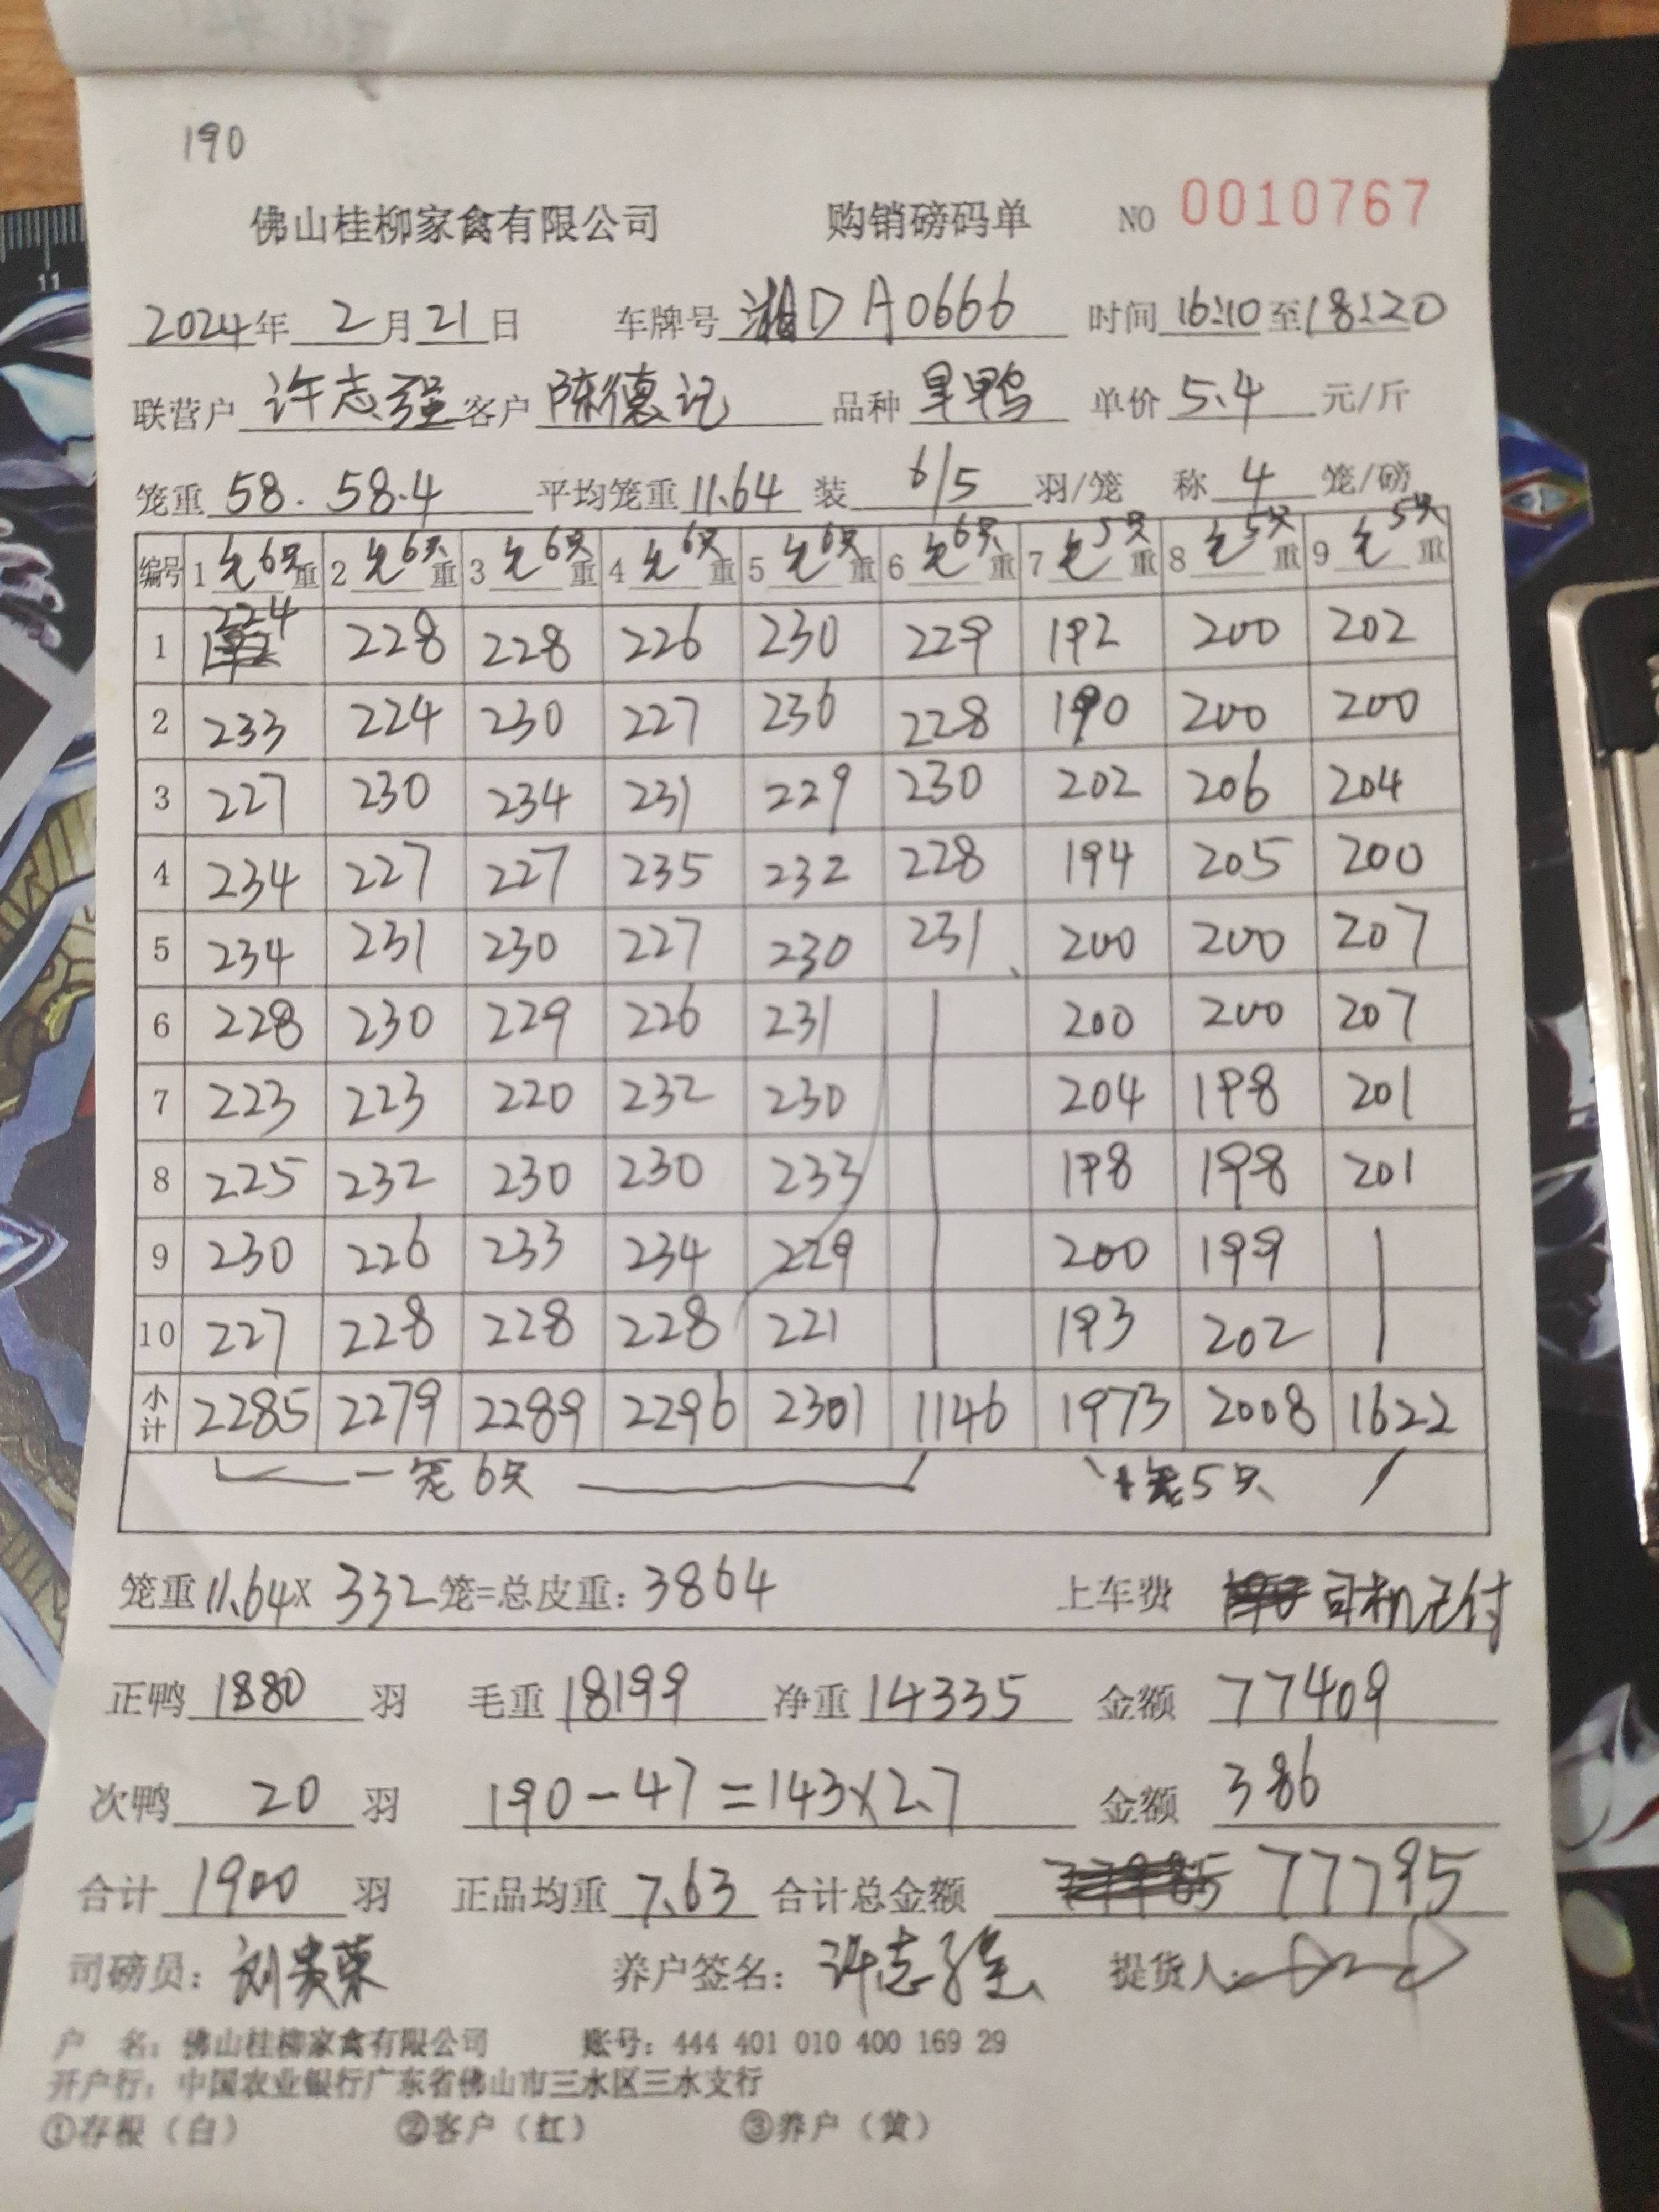 190
佛山桂柳家禽有限公司 购销磅码单 NO 0010767
2024年 2月21日 车牌号 湘DA0666 时间 16:10 至 18:20
联营户 许志强 客户 陈德记 品种 旱鸭 单价 5.4 元/斤
笼重 58. 58.4 平均笼重 11.64 装 6/5 羽/笼 称 4 笼/磅
编号 1 笼6只重 2 笼6只重 3 笼6只重 4 笼6只重 5 笼6只重 6 笼6只重 7 笼5只重 8 笼5只重 9 笼5只重
1 224 228 228 226 230 229 192 200 202
2 233 224 230 227 236 228 190 200 200
3 227 230 234 231 229 230 202 206 204
4 234 227 227 235 232 228 194 205 200
5 234 231 230 227 230 231 200 200 207
6 228 230 229 226 231 200 200 207
7 223 223 220 232 230 204 198 201
8 225 232 230 230 233 198 198 201
9 230 226 233 234 229 200 199
10 227 228 228 228 221 193 202
小计 2285 2279 2289 2296 2301 1146 1973 2008 1622
一笼6只 笼5只
笼重 11.64 X 332 笼=总皮重: 3864 上车费 司机已付
正鸭 1880 羽 毛重 18199 净重 14335 金额 77409
次鸭 20 羽 190-47=143X2.7 金额 386
合计 1900 羽 正品均重 7.63 合计总金额 77795
司磅员: 刘贵荣 养户签名: 许志强 提货人:
户 名: 佛山桂柳家禽有限公司 账号: 444 401 010 400 169 29
开户行: 中国农业银行广东省佛山市三水区三水支行
①存根（白） ②客户（红） ③养户（黄）
11